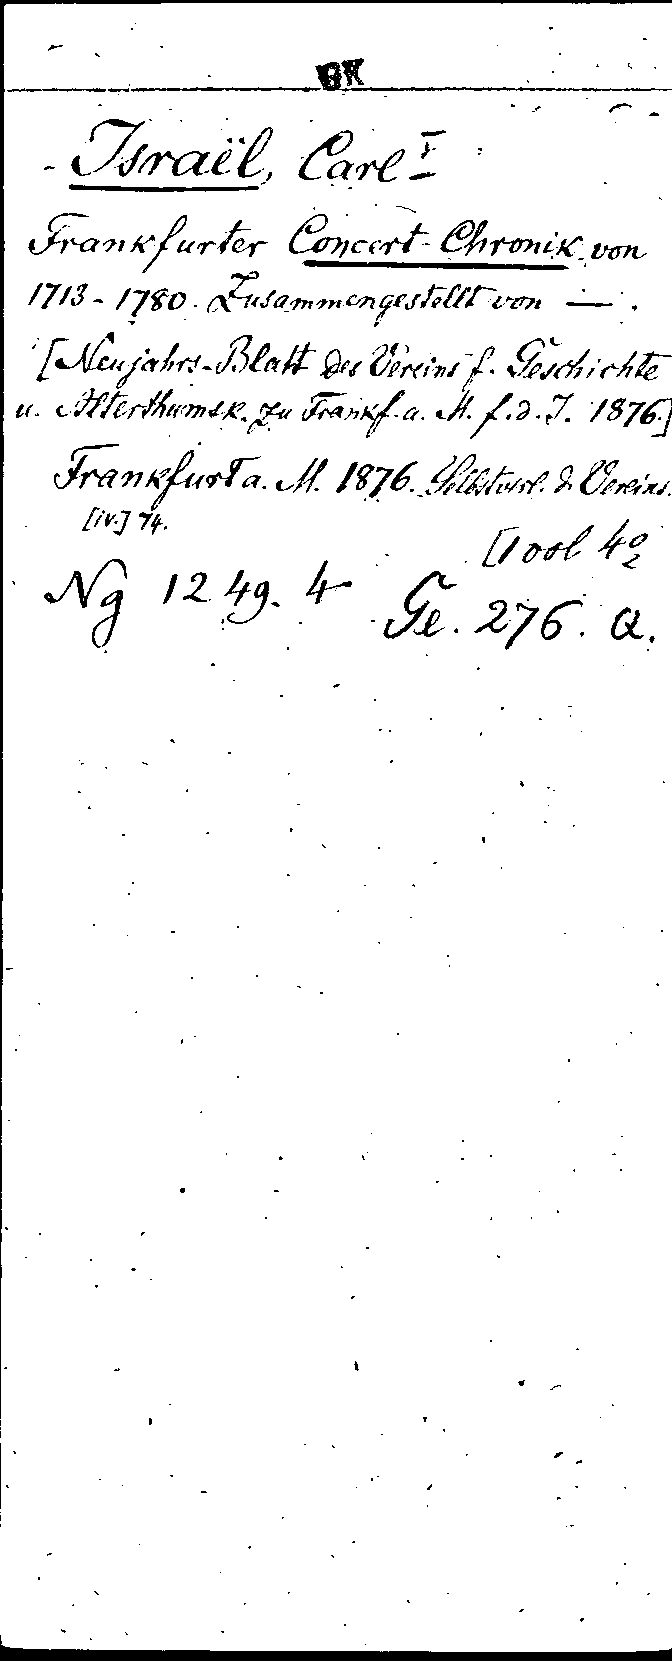 GK
Israël, Carl I
Frankfurter Concert-Chronik von
1713-1780. Zusammengestellt von — .
[Neujahrs-Blatt des Vereins f. Geschichte
u. Alterthumsk. zu Frankf. a. M. f. d. J. 1876.]
Frankfurt a. M. 1876. Selbstverl. d. Vereins.
[IV.] 74.
4º
Ng 1249. 4
Ge. 276. Q.